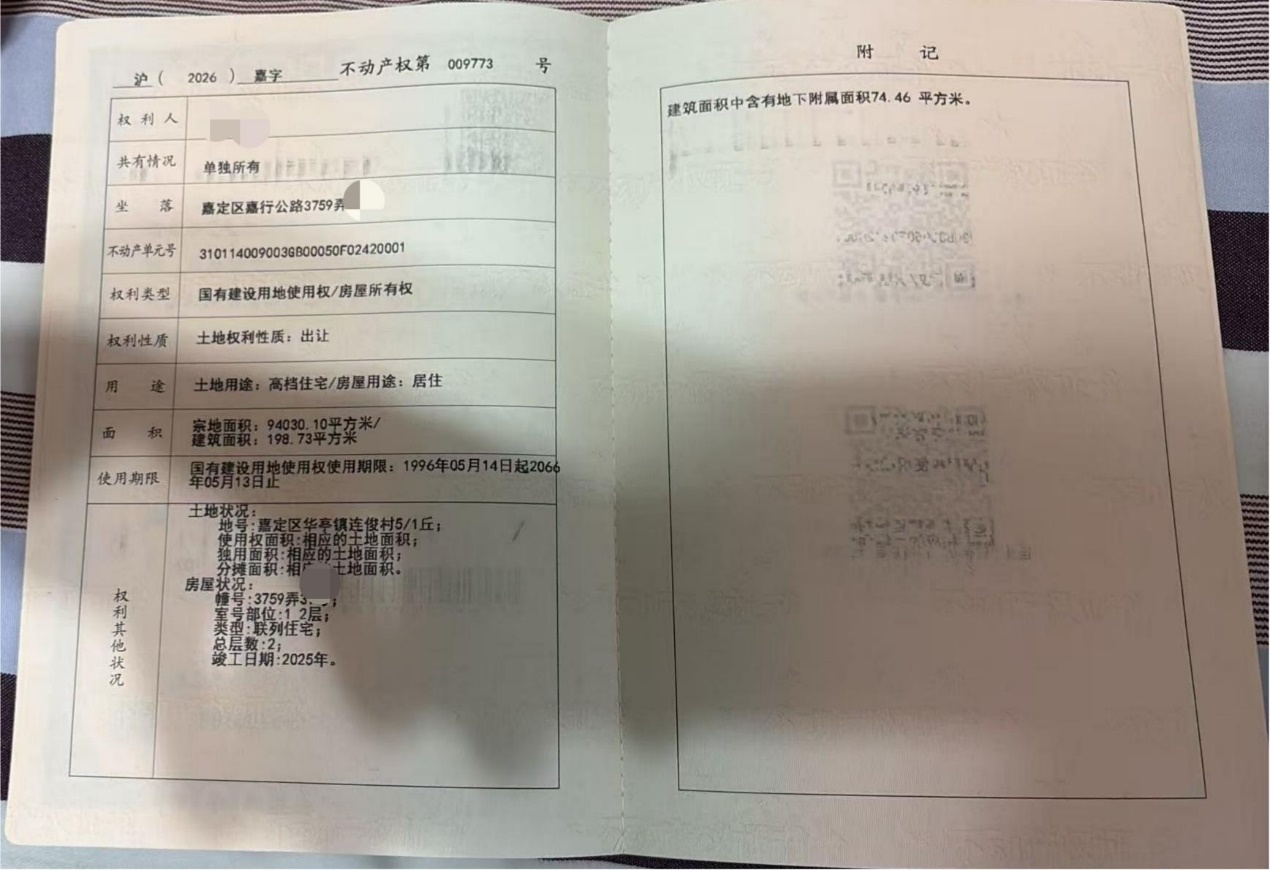 沪（ 2026 ） 嘉字 不动产权第 009773 号
权利人
共有情况 单独所有
坐落 嘉定区嘉行公路3759弄
不动产单元号 310114009003GB00050F02420001
权利类型 国有建设用地使用权/房屋所有权
权利性质 土地权利性质：出让
用途 土地用途：高档住宅/房屋用途：居住
面积 宗地面积：94030.10平方米/
建筑面积：198.73平方米
使用期限 国有建设用地使用权使用期限：1996年05月14日起2066
年05月13日止
权利其他状况
土地状况：
地号:嘉定区华亭镇连俊村5/1丘；
使用权面积:相应的土地面积；
独用面积:相应的土地面积；
分摊面积:相 土地面积。
房屋状况：
幢号:3759弄3
室号部位:1_2层；
类型:联列住宅；
总层数:2；
竣工日期:2025年。
附 记
建筑面积中含有地下附属面积74.46 平方米。